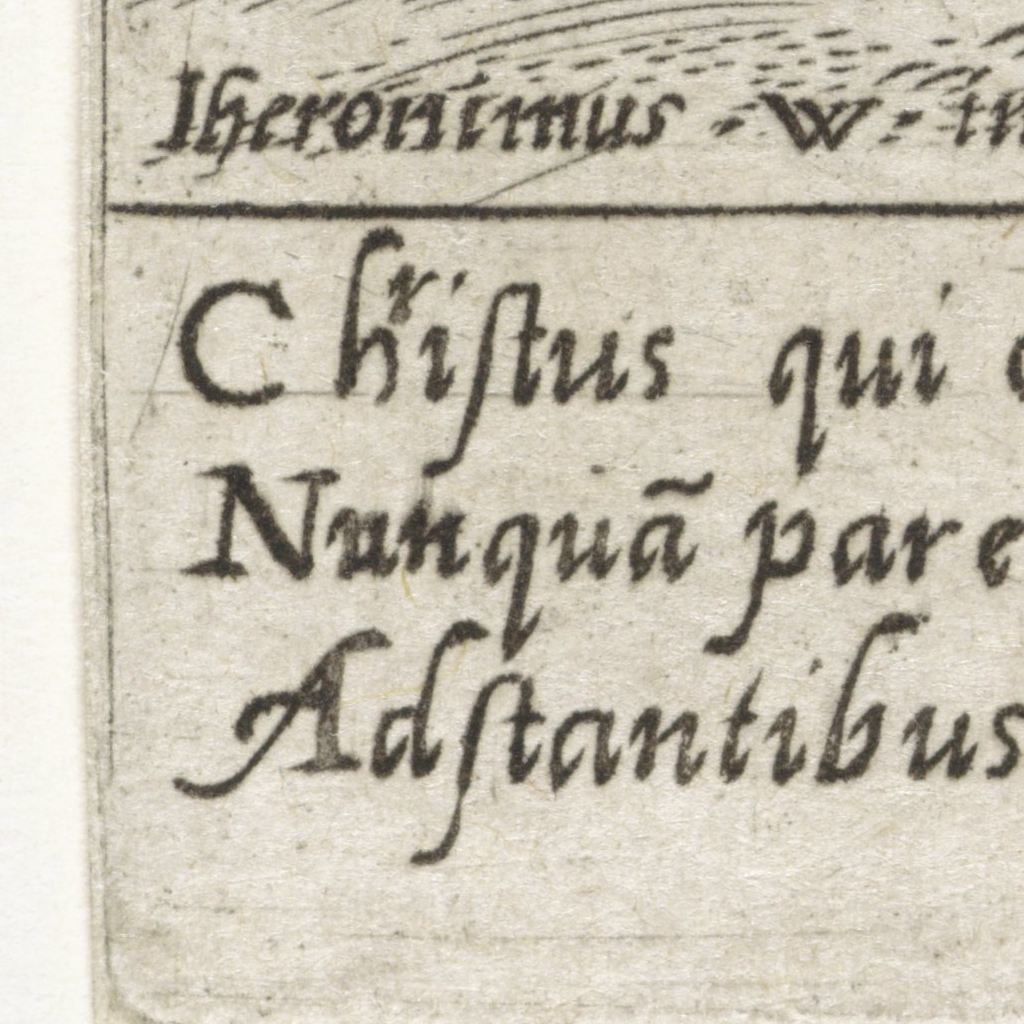 Iheronimus · w ·
Chriſtus qui
Nunquā pare
Adſtantibus